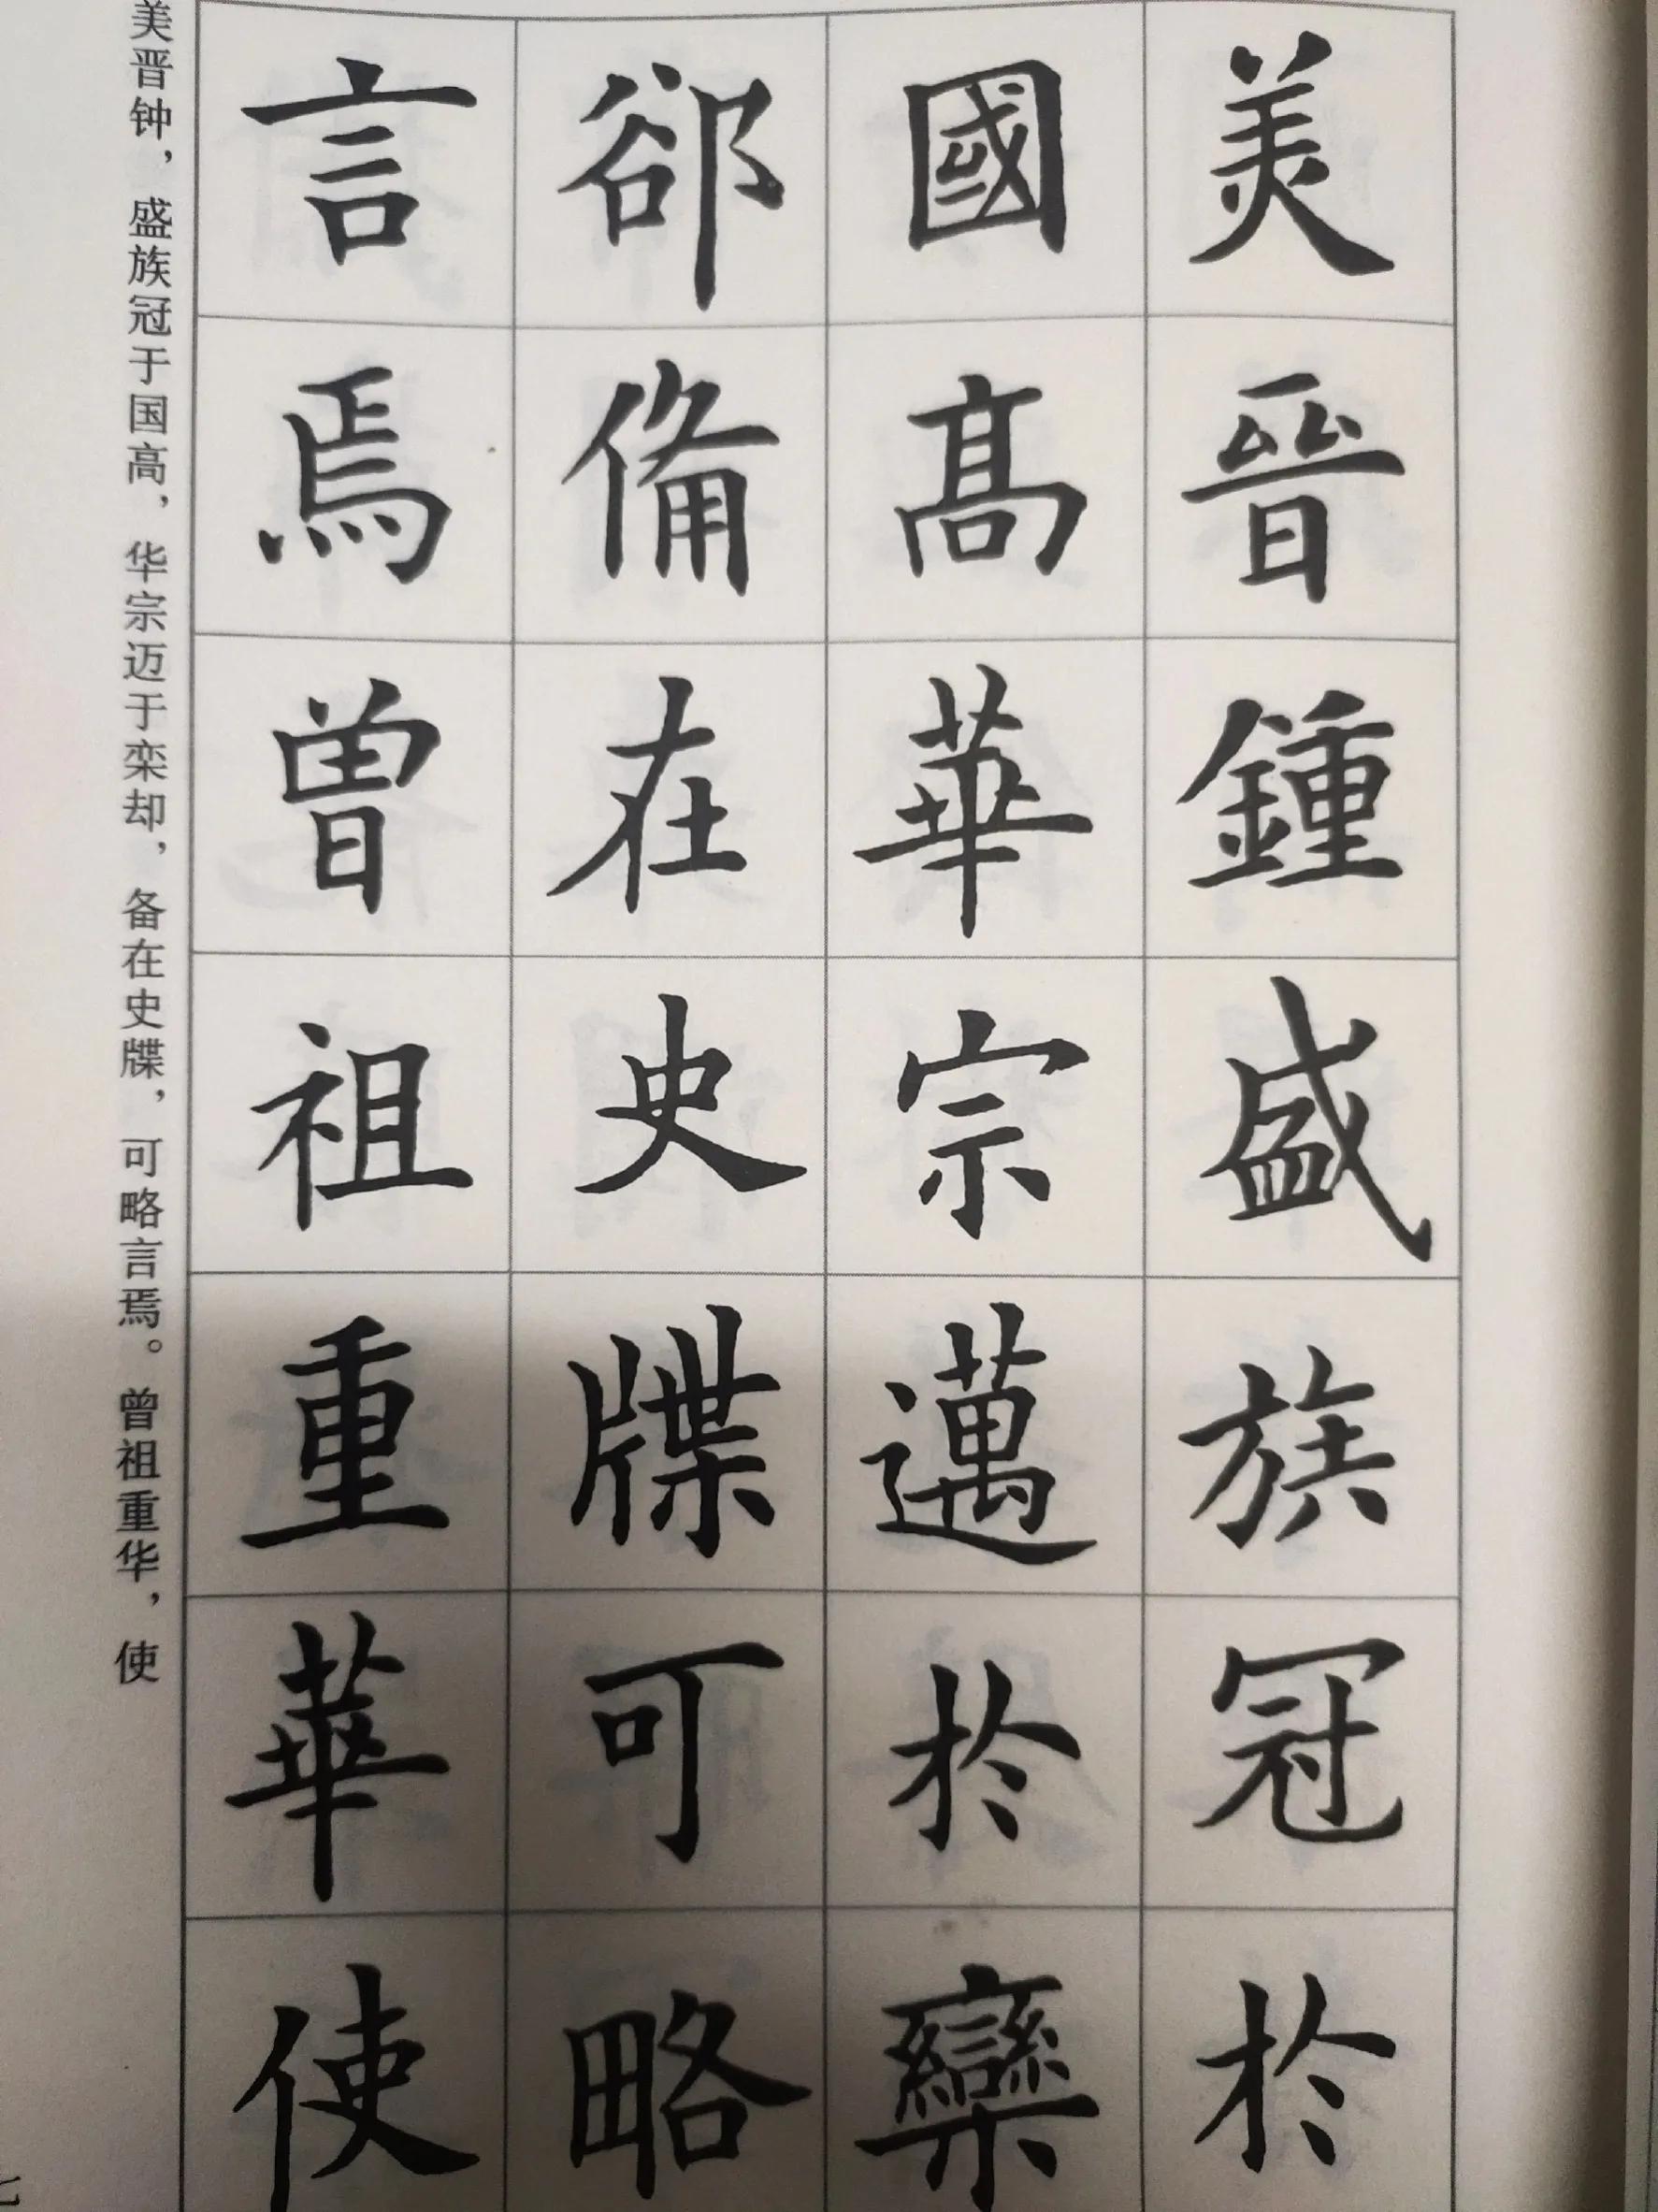 美晉鍾盛族冠於
國高華宗邁於欒
郤俻在史牒可略
言焉曽祖重華使
美晋钟，盛族冠于国高，华宗迈于栾却，备在史牒，可略言焉。曾祖重华，使
七